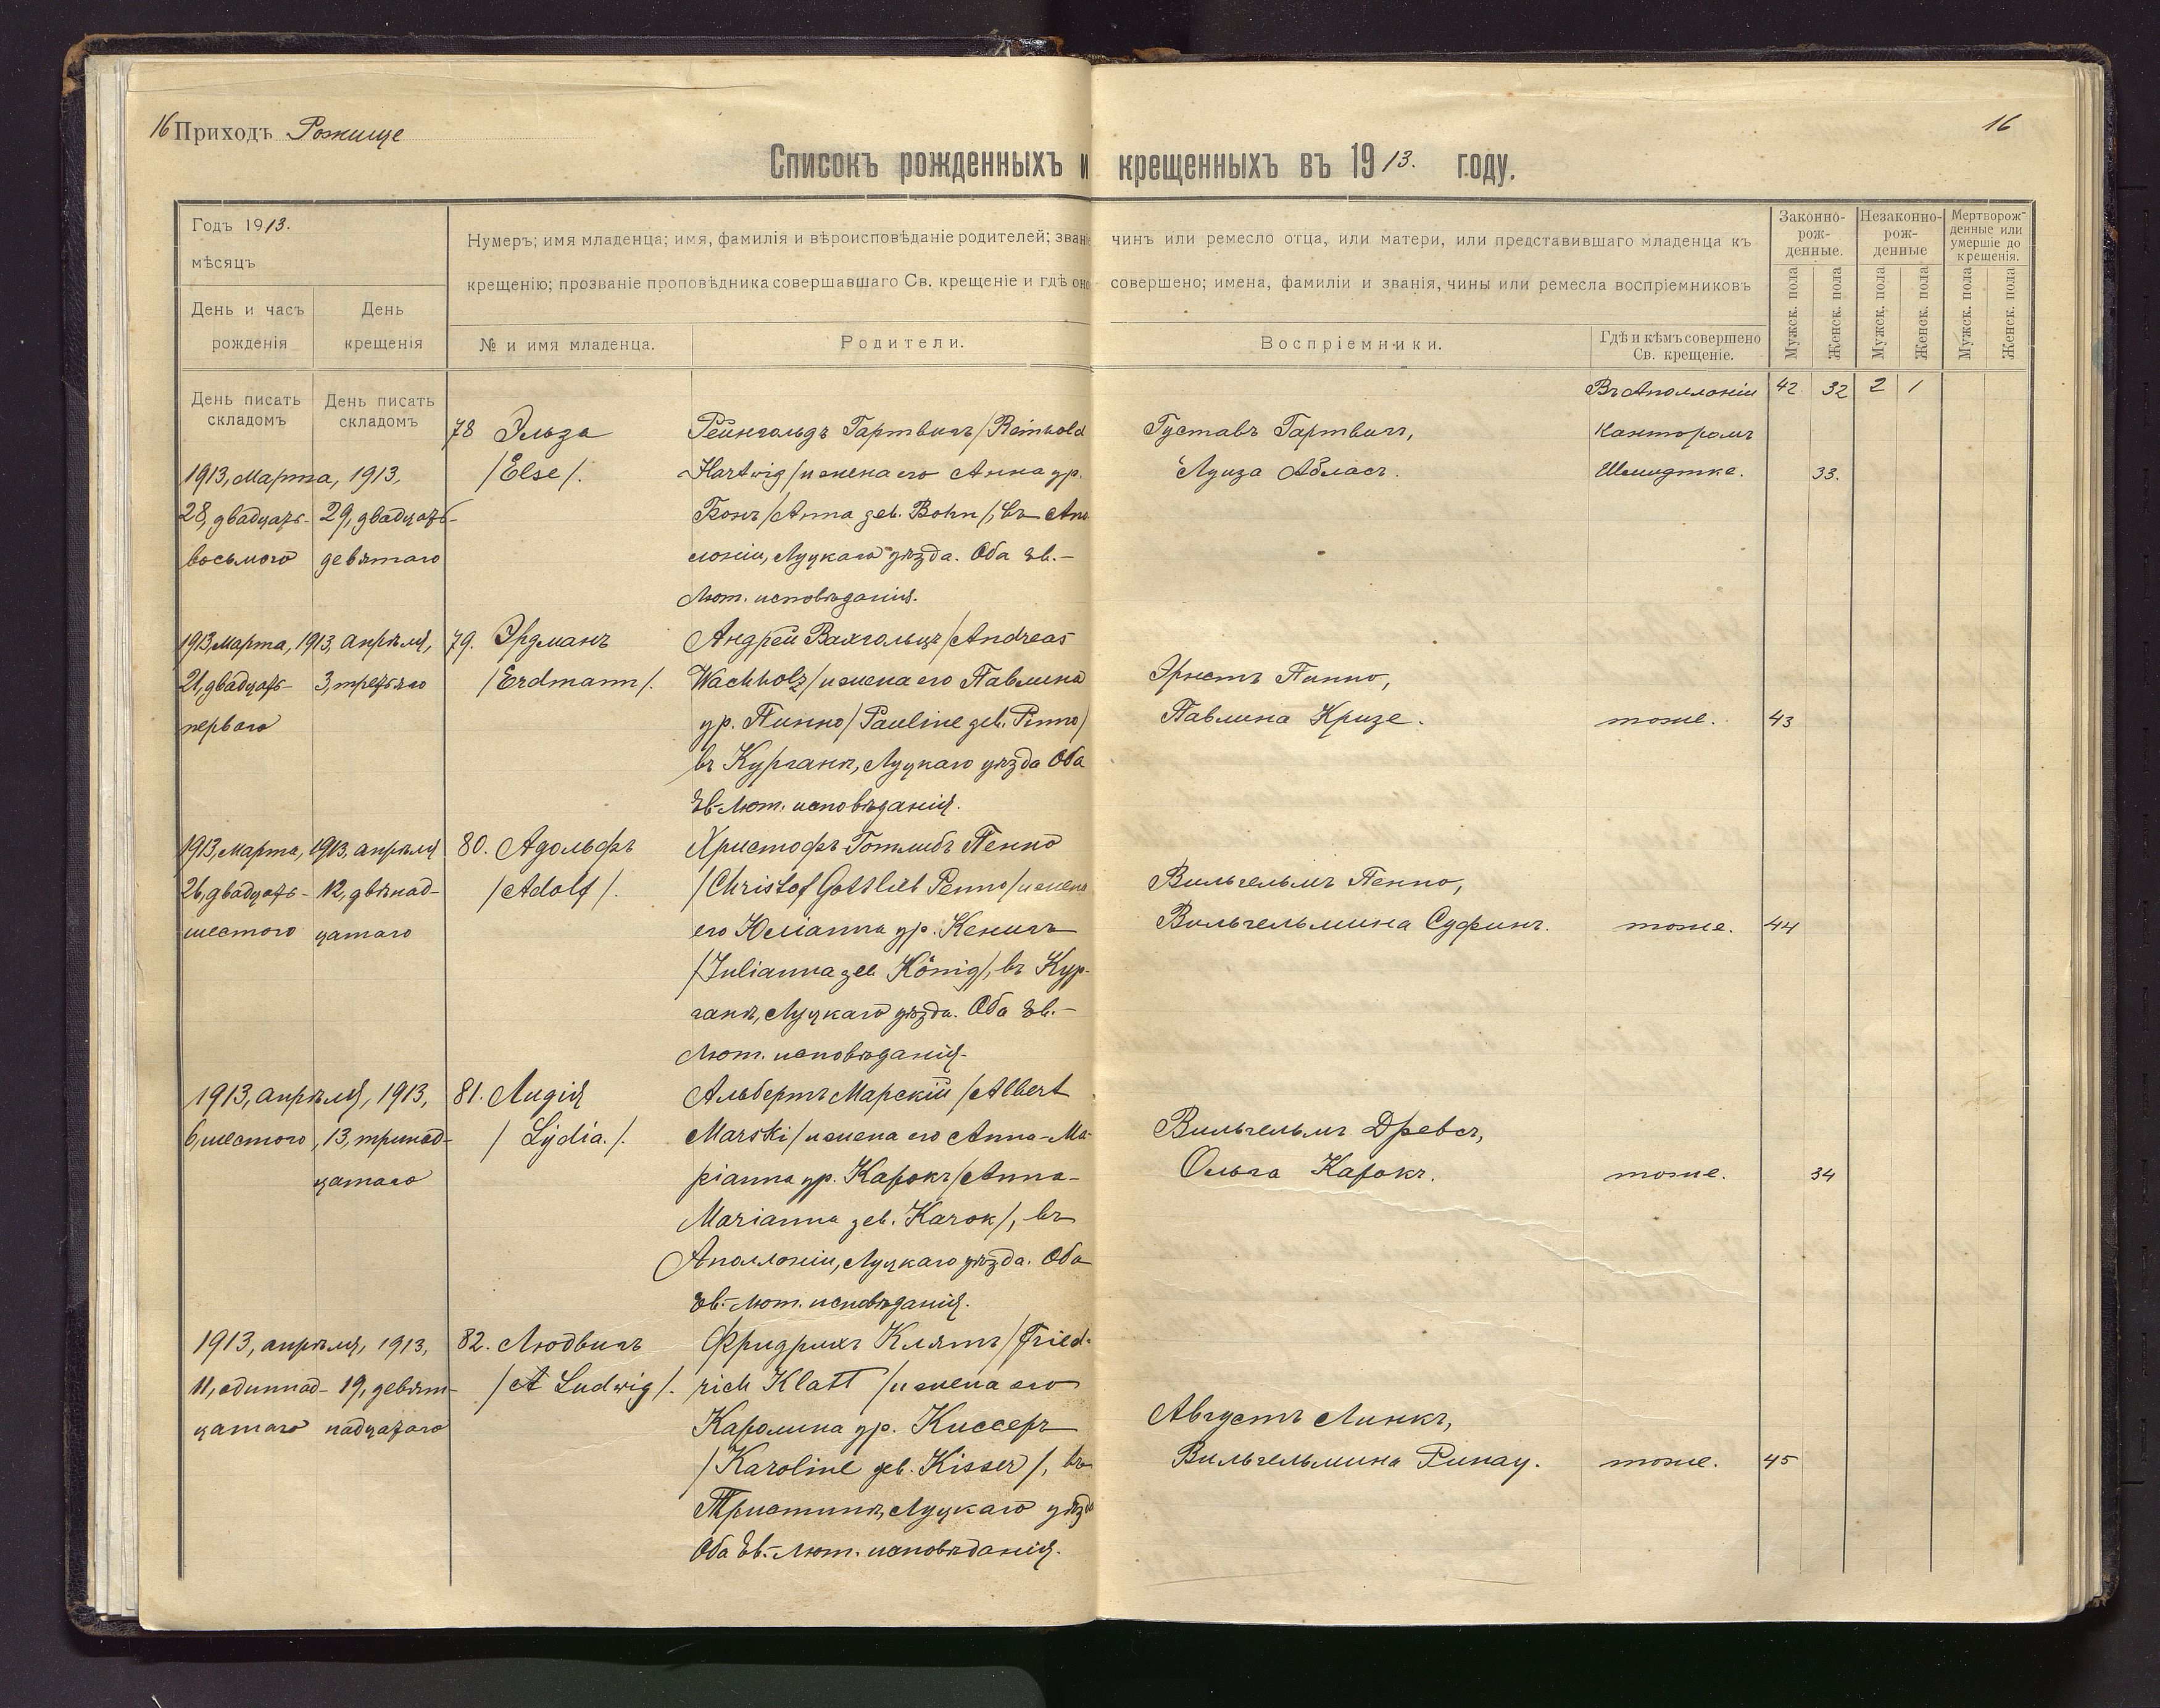 16 Приходъ Рожище
16
Списокъ рожденныхъ и крещенныхъ въ 1913. году.
Годъ 1913.
мѣсяцъ
День и часъ рожденія
День крещенія
Нумеръ; имя младенца; имя, фамилія и вѣроисповѣданіе родителей; званіе чинъ или ремесло отца, или матери, или представившаго младенца къ
крещенію; прозваніе проповѣдника совершавшаго Св. крещеніе и гдѣ оно совершено; имена, фамиліи и званія, чины или ремесла воспріемниковъ
№ и имя младенца.
Родители.
Воспріемники.
Гдѣ и кѣмъ совершено
Св. крещеніе.
Законно-
рож-
денные.
Незаконно-
рож-
денные
Мертворож-
денные или
умершіе до
крещенія.
Мужск. пола
Женск. пола
Мужск. пола
Женск. пола
Мужск. пола
Женск. пола
День писать складомъ
День писать складомъ
Въ Аполлоніи 42 32 2 1
78 Эльза
/Else/.
1913, Марта, 1913,
28, двадцать- 29, двадцать-
восьмого девятаго
Рейнгольдъ Гартвигъ /Reinhold
Hartwig/ и жена его Анна ур.
Бонъ /Anna geb. Bohn/, въ Апо
лоніи, Луцкаго уѣзда. Оба Ев.-
Лют. исповѣданія.
Густавъ Гартвигъ,
Луиза Абласъ.
Канторомъ
Шмидтке. 33.
1913, Марта, 1913, апрѣля,
21, двадцать- 3, третьяго
перваго
79. Эрдманъ
/Erdmann/.
Андрей Вахгольцъ /Andreas
Wachholz/ и жена его Павлина
ур. Пинно /Pauline geb. Pinno/
въ Курганѣ, Луцкаго уѣзда Оба
Ев-Лют. исповѣданія.
Эрнстъ Пинно,
Павлина Кризе.
тоже. 43
1913, Марта, 1913, апрѣля
26, двадцать- 12, двѣнад-
шестого цатаго
80. Адольфъ
/Adolf/.
Христофъ Готлибъ Пенно
/Christof Gottlieb Penno/ и жена
его Юліанна ур. Кенигъ
/Julianna geb König/, въ Кур-
ганѣ, Луцкаго уѣзда. Оба Ев.-
Лют. исповѣданія.
Вильгельмъ Пенно,
Вильгельмина Судфинъ.
тоже. 44
1913, апрѣля, 1913,
6, шестого, 13, тринад-
цатаго
81. Лидія
/Lydia./.
Альбертъ Марскій /Albert
Marski/ и жена его Анна-Ма-
ріанна ур. Карокъ /Anna-
Marianna geb. Karok/, въ
Аполлоніи, Луцкаго уѣзда. Оба
Ев.-Лют. исповѣданія.
Вильгельмъ Древсъ,
Ольга Карокъ.
тоже. 34
1913, апрѣля, 1913,
11, одиннад- 19, девят-
цатаго надцатаго
82. Людвигъ
/A Ludwig/.
Фридрихъ Клятъ /Fried-
rich Klatt/ и жена его
Каролина ур. Киссеръ
/Karoline geb. Kisser/, въ
Тристинѣ, Луцкаго уѣзда
Оба Ев.-Лют. исповѣданія.
Августъ Линкъ,
Вильгельмина Ринау.
тоже. 45